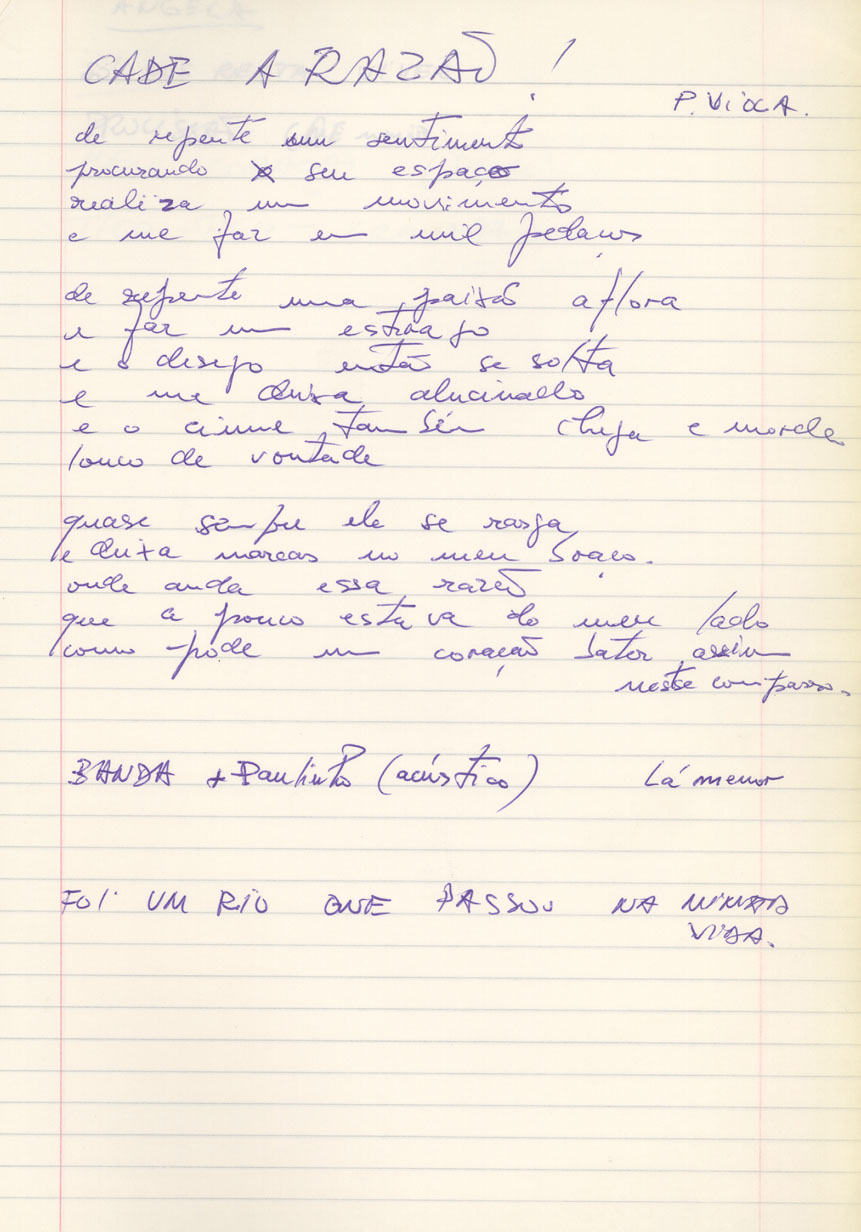 CADE A RAZAÕ!
P. VIOLA.
de repente um sentimento
procurando seu espaço
realiza um movimento
e me faz em mil pedaços
de repente uma paixão aflora
e faz um estrago
e o desejo então se solta
e me deixa alucinado
e o ciume também chega e morde
louco de vontade
quase sempre ele se rasga
e deixa marcas no meu braço.
onde anda essa razão
que a pouco estava do meu lado
como pode um coração bater assim
neste compasso.
BANDA + Paulinho (acústico) Lá menor
FOI UM RIO QUE PASSOU NA MINHA
VIDA.